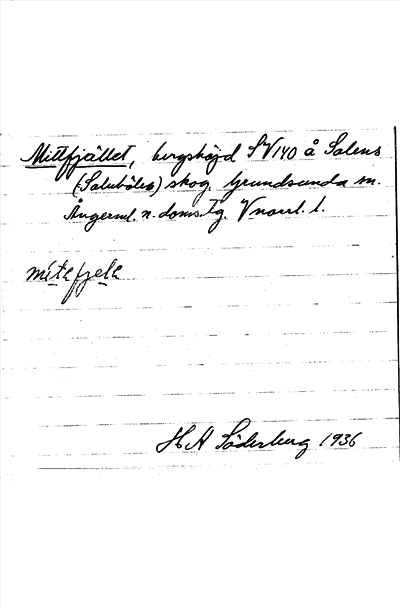 Mittfjället, bergshöjd SV140 å Salens
(Salubölen) skog, Grundsunda sn.
Ångerml. n. doms. tg. Vnorrl. l.
mitafjela
H A Söderberg 1936